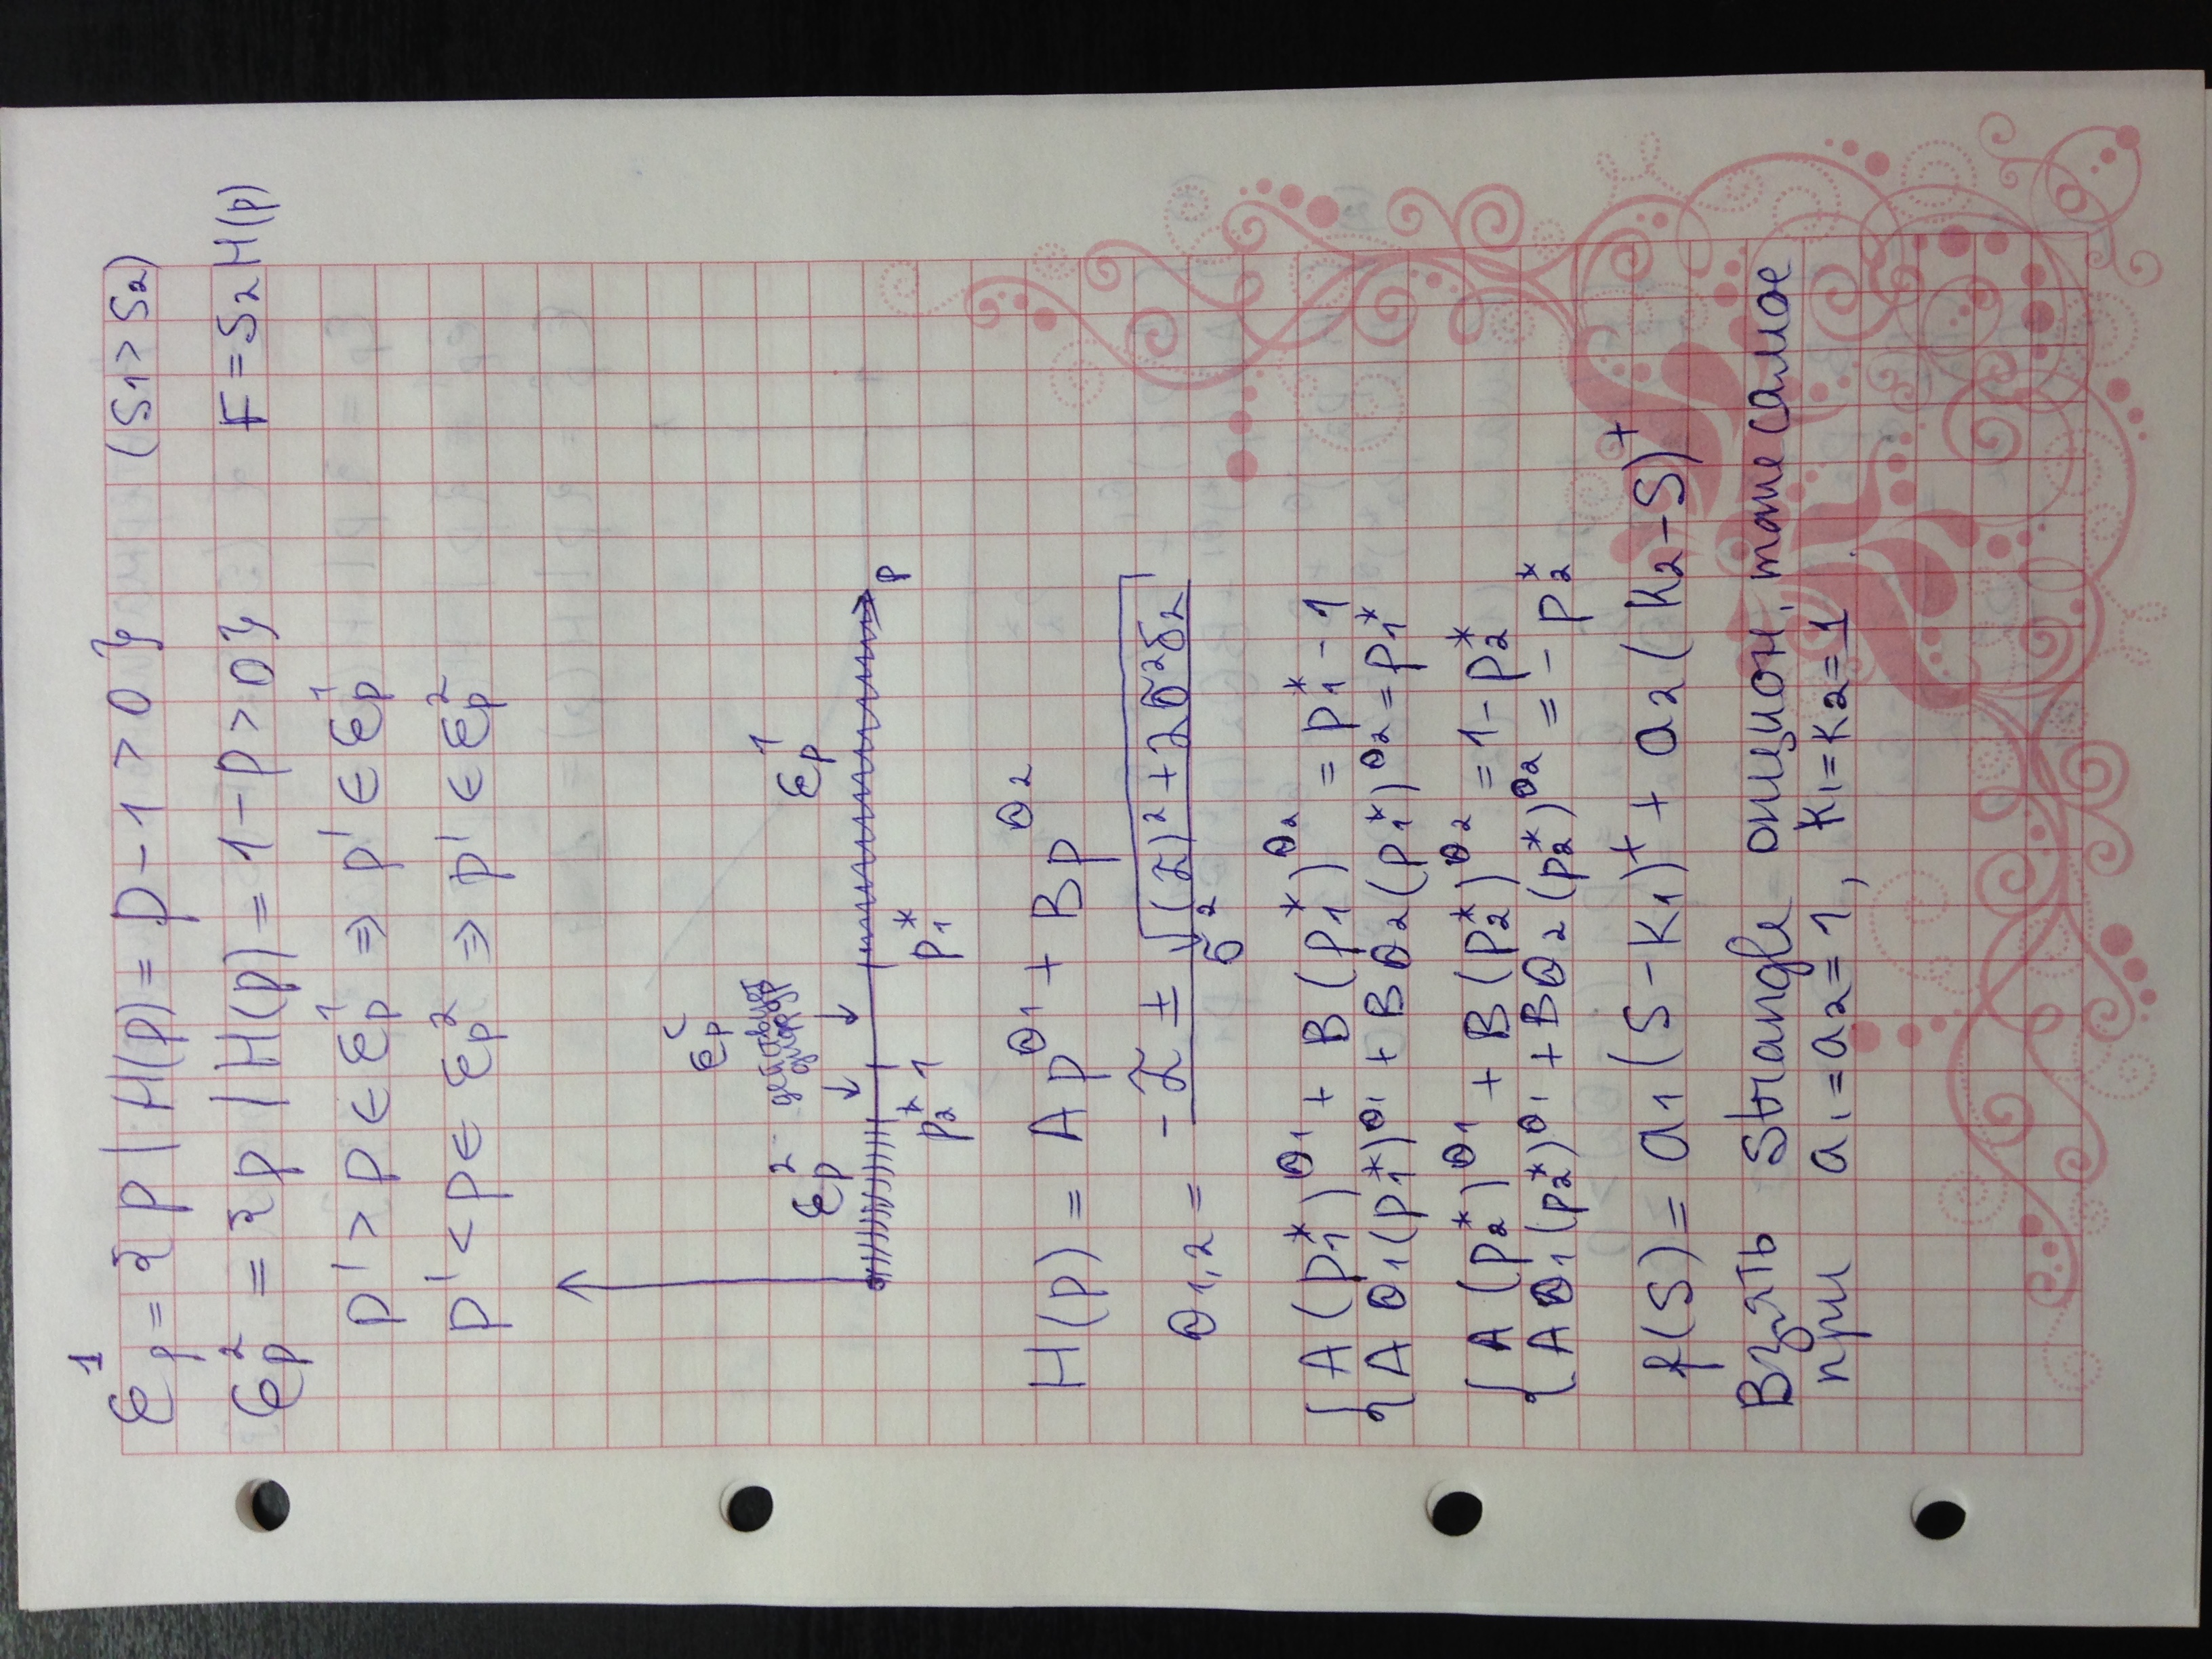 ℰ_p^1 = {p | H(p) = p - 1 > 0} (S1 > S2)
ℰ_p^2 = {p | H(p) = 1 - p > 0} F = S2 H(p)
p' > p ∈ ℰ_p^1 ⇒ p' ∈ ℰ_p^1
p' < p ∈ ℰ_p^2 ⇒ p' ∈ ℰ_p^2
ℰ_p^c
ℰ_p^2 действует ℰ_p^1
p2* 1 p1* p
H(p) = A p^θ1 + B p^θ2
θ1,2 = (-α̃ ± √((α̃)² + 2σ²δ2)) / σ²
{ A(p1*)^θ1 + B(p1*)^θ2 = p1* - 1
Aθ1(p1*)^θ1 + Bθ2(p1*)^θ2 = p1*
{ A(p2*)^θ1 + B(p2*)^θ2 = 1 - p2*
Aθ1(p2*)^θ1 + Bθ2(p2*)^θ2 = - p2*
f(S) = a1(S - K1)^+ + a2(K2 - S)^+
Взять Strangle опцион, тоже самое
при a1 = a2 = 1, K1 = K2 = 1